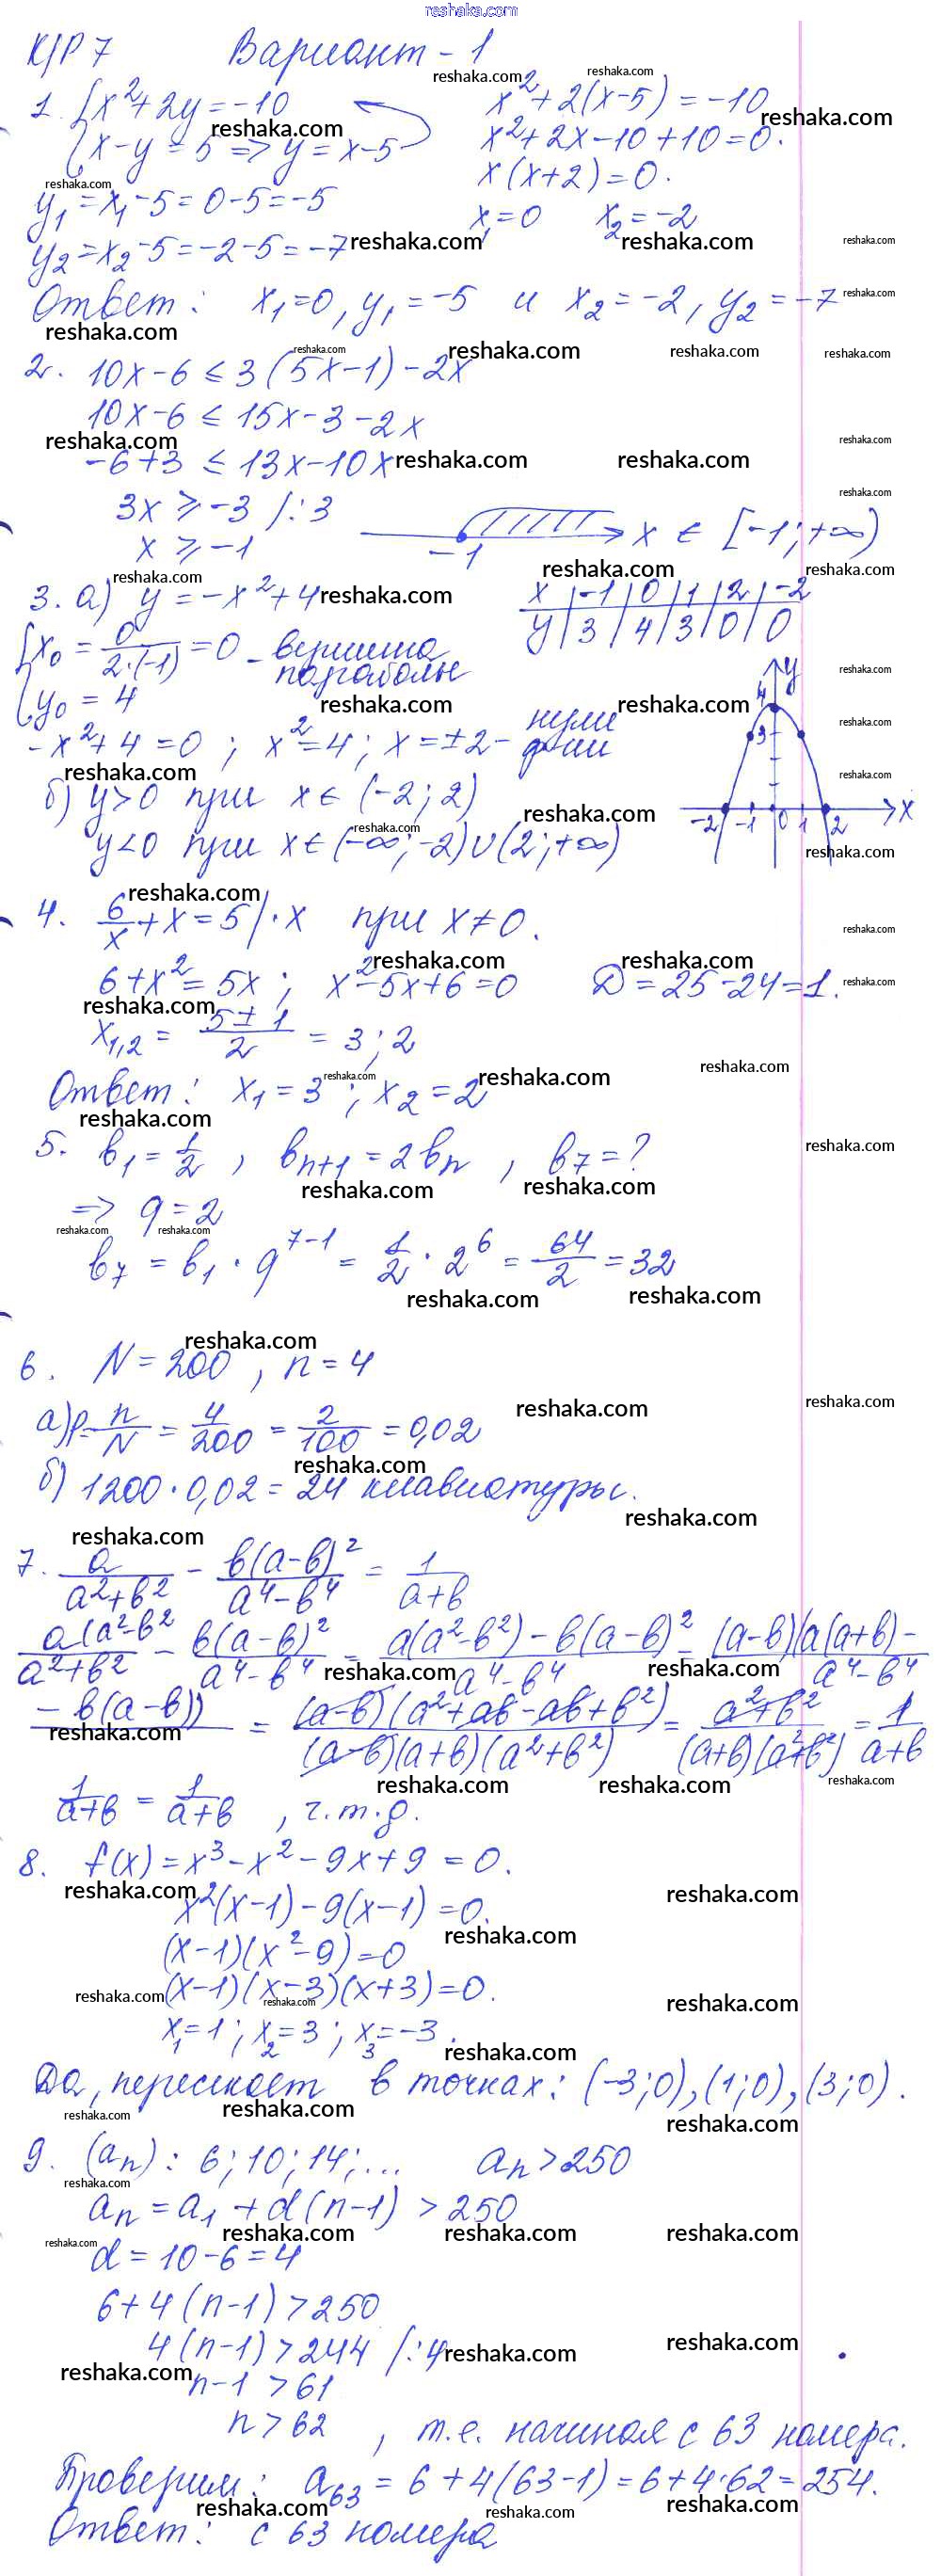 reshaka.com
К/Р 7 Вариант - 1
1. {x²+2y=-10 x²+2(x-5)=-10
x-y=5 => y=x-5 x²+2x-10+10=0.
y₁=x₁-5=0-5=-5 x(x+2)=0.
x₁=0 x₂=-2
y₂=x₂-5=-2-5=-7
Ответ: x₁=0, y₁=-5 и x₂=-2, y₂=-7
2. 10x-6 ≤ 3(5x-1)-2x
10x-6 ≤ 15x-3-2x
-6+3 ≤ 13x-10x
3x ≥ -3 /:3
x ≥ -1 -1 x ∈ [-1; +∞)
3. а) y=-x²+4 x | -1 | 0 | 1 | 2 | -2
y | 3 | 4 | 3 | 0 | 0
{x₀ = 0/(2·(-1)) = 0 - вершина
параболы
y₀ = 4
-x²+4=0; x²=4; x=±2 - нули
ф-ции
4 y 3 -2 -1 0 1 2 x
б) y>0 при x ∈ (-2; 2)
y<0 при x ∈ (-∞; -2)∪(2; +∞)
4. 6/x + x = 5 /·x при x≠0.
6+x²=5x; x²-5x+6=0 D=25-24=1.
x₁,₂ = (5±1)/2 = 3; 2
Ответ: x₁=3; x₂=2
5. b₁=1/2, bₙ₊₁=2bₙ, b₇=?
=> q=2
b₇ = b₁·q⁷⁻¹ = 1/2 · 2⁶ = 64/2 = 32
6. N=200, n=4
а) p=n/N = 4/200 = 2/100 = 0,02
б) 1200·0,02=24 клавиатуры.
7. a/(a²+b²) - b(a-b)²/(a⁴-b⁴) = 1/(a+b)
a(a²-b²/(a²+b²) - b(a-b)²/(a⁴-b⁴) = (a(a²-b²)-b(a-b)²)/(a⁴-b⁴) = (a-b)(a(a+b)-/(a⁴-b⁴)
-b(a-b)) = (a-b)(a²+ab-ab+b²)/((a-b)(a+b)(a²+b²)) = (a²+b²)/((a+b)(a²+b²)) = 1/(a+b)
1/(a+b) = 1/(a+b), ч.т.д.
8. f(x)=x³-x²-9x+9=0.
x²(x-1)-9(x-1)=0.
(x-1)(x²-9)=0
(x-1)(x-3)(x+3)=0.
x₁=1; x₂=3; x₃=-3.
Да, пересекает в точках: (-3;0), (1;0), (3;0).
9. (aₙ): 6; 10; 14; ... aₙ>250
aₙ=a₁+d(n-1)>250
d=10-6=4
6+4(n-1)>250
4(n-1)>244 /:4
n-1>61
n>62, т.е. начиная с 63 номера.
Проверим: a₆₃=6+4(63-1)=6+4·62=254.
Ответ: с 63 номера